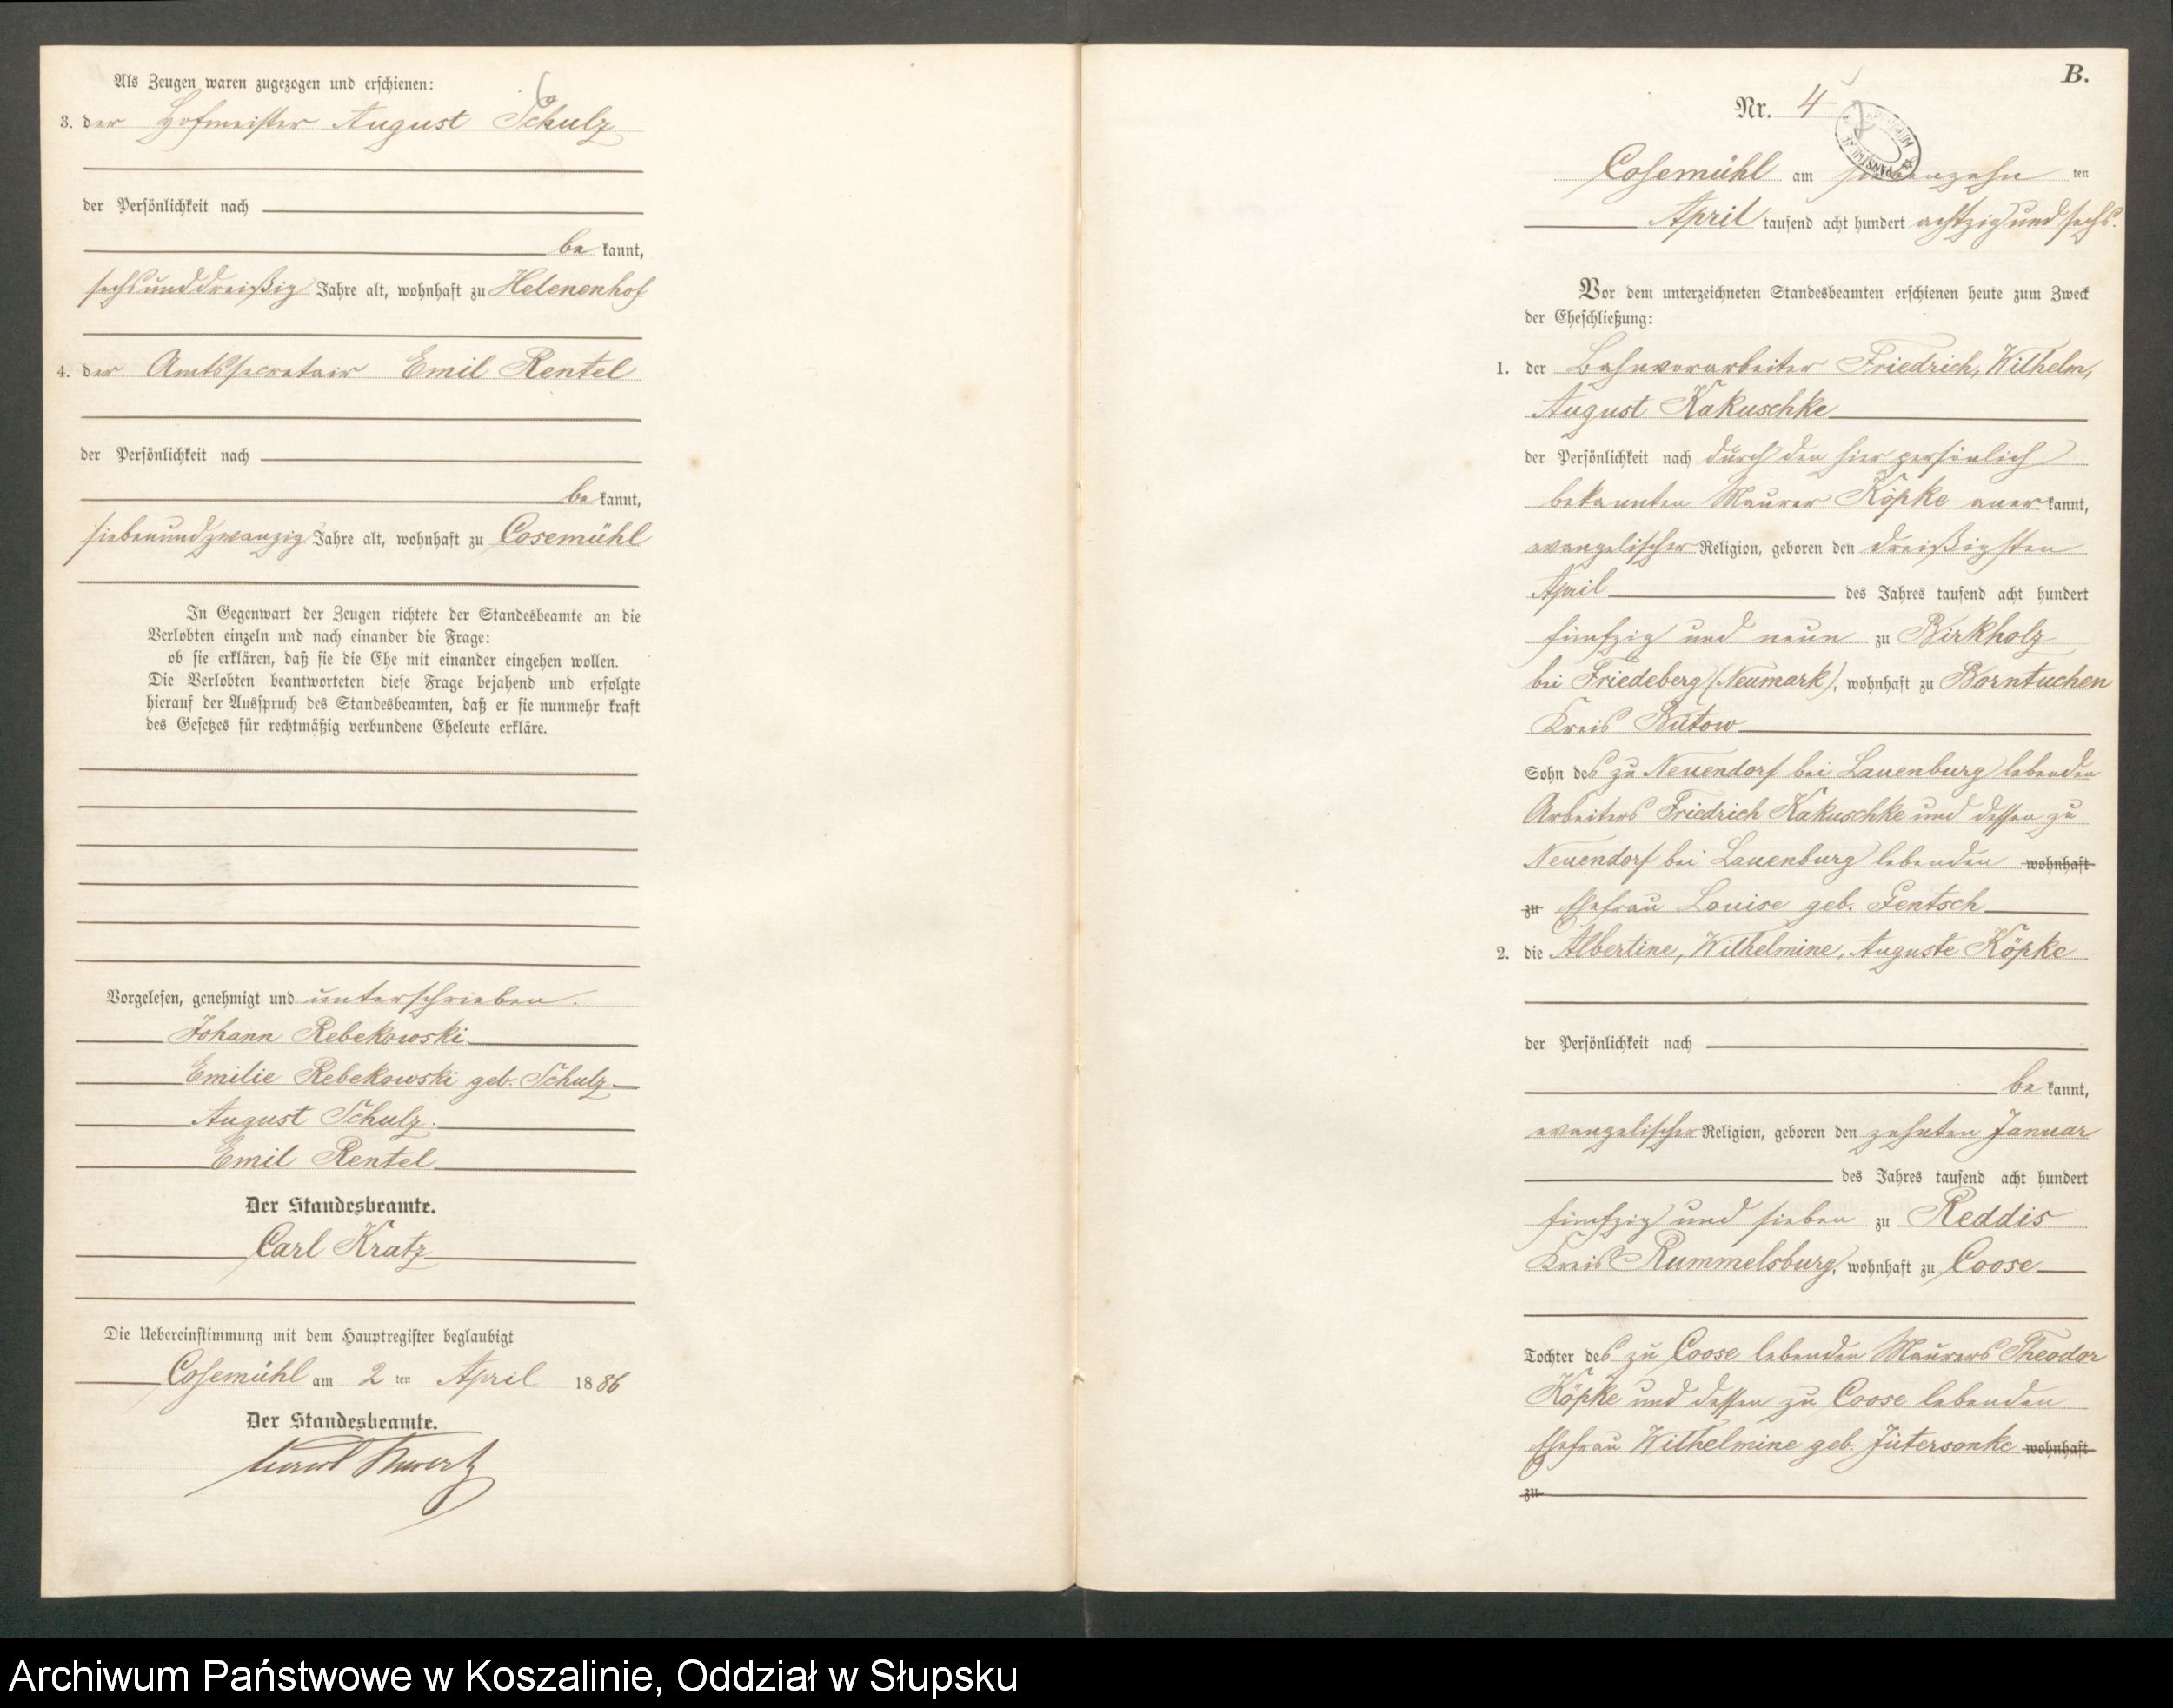 Als Zeugen waren zugezogen und erschienen:
3. der Hofmeister August Schulz
der Persönlichkeit nach
be kannt,
sechsunddreißig Jahre alt, wohnhaft zu Helenenhof
4. der Amtssecretair Emil Rentel
der Persönlichkeit nach
be kannt,
siebenundzwanzig Jahre alt, wohnhaft zu Cosemühl
In Gegenwart der Zeugen richtete der Standesbeamte an die
Verlobten einzeln und nach einander die Frage:
ob sie erklären, daß sie die Ehe mit einander eingehen wollen.
Die Verlobten beantworteten diese Frage bejahend und erfolgte
hierauf der Ausspruch des Standesbeamten, daß er sie nunmehr kraft
des Gesetzes für rechtmäßig verbundene Eheleute erkläre.
Vorgelesen, genehmigt und unterschrieben.
Johann Rebekowski
Emilie Rebekowski geb. Schulz
August Schulz.
Emil Rentel
Der Standesbeamte.
Carl Kratz
Die Uebereinstimmung mit dem Hauptregister beglaubigt
Cosemühl am 2 ten April 1886
Der Standesbeamte.
B.
Nr. 4
Cosemühl am siebenzehn ten
April tausend acht hundert achtzig und sechs.
Vor dem unterzeichneten Standesbeamten erschienen heute zum Zweck
der Eheschließung:
1. der Bahnvorarbeiter Friedrich, Wilhelm,
August Kakuschke
der Persönlichkeit nach durch den hier persönlich
bekannten Maurer Köpke aner kannt,
evangelischer Religion, geboren den dreißigsten
April des Jahres tausend acht hundert
fünfzig und neun zu Birkholz
bei Friedeberg (Neumark), wohnhaft zu Borntuchen
Kreis Bütow
Sohn des zu Neuendorf bei Lauenburg lebenden
Arbeiters Friedrich Kakuschke und dessen zu
Neuendorf bei Lauenburg lebenden wohnhaft
zu Ehefrau Louise geb. Fentsch
2. die Albertine, Wilhelmine, Auguste Köpke
der Persönlichkeit nach
be kannt,
evangelischer Religion, geboren den zehnten Januar
des Jahres tausend acht hundert
fünfzig und sieben zu Reddis
Kreis Rummelsburg, wohnhaft zu Coose
Tochter des zu Coose lebenden Maurers Theodor
Köpke und dessen zu Coose lebenden
Ehefrau Wilhelmine geb. Jütersonke wohnhaft
zu
Archiwum Państwowe w Koszalinie, Oddział w Słupsku